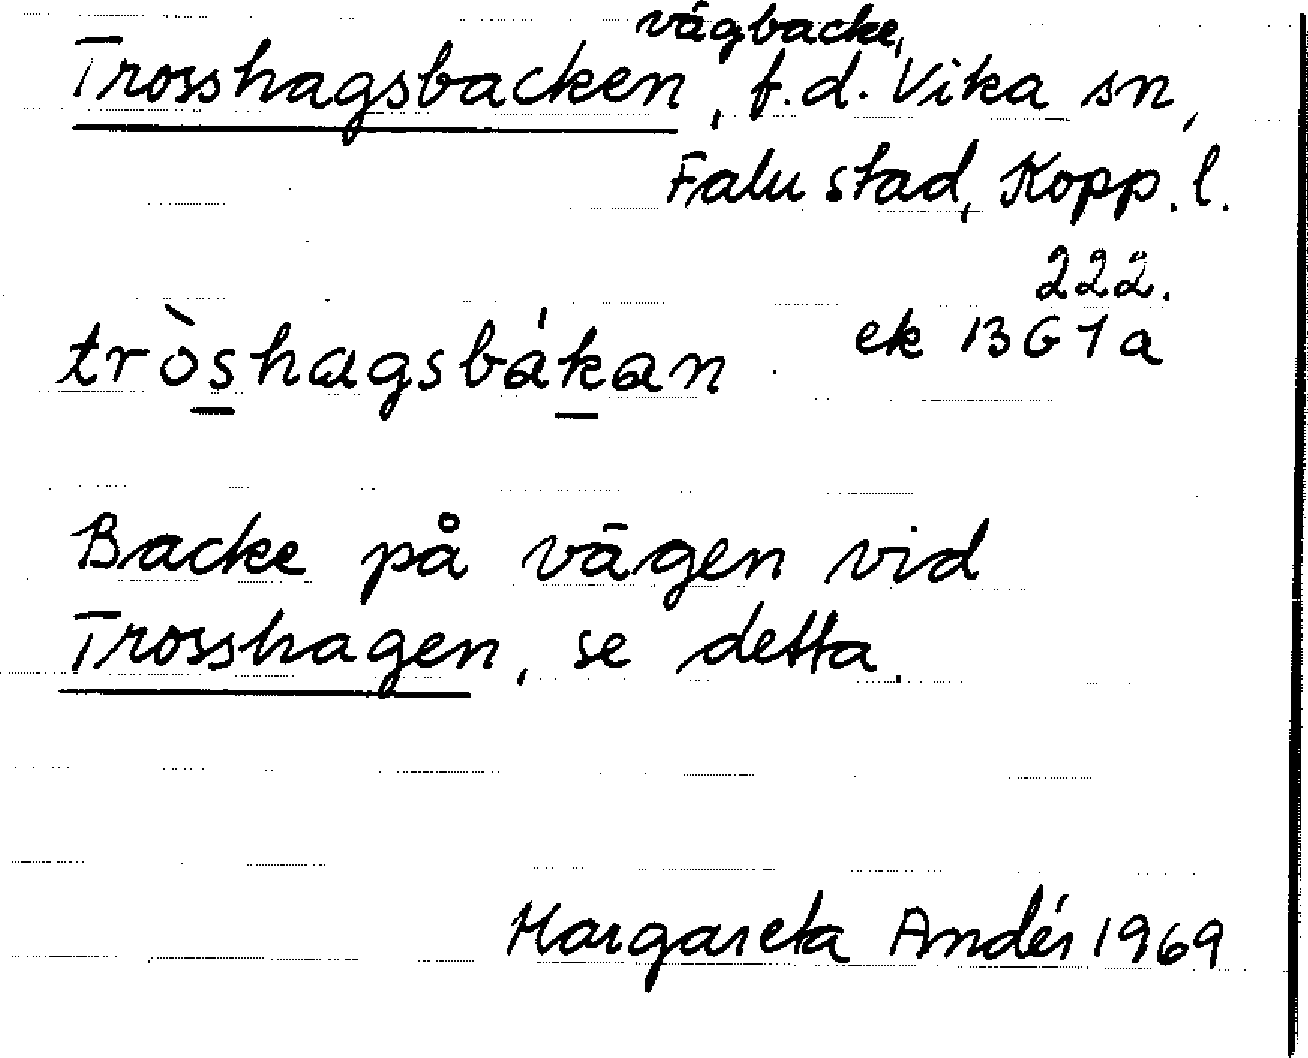 vägbacke,
Trosshagsbacken, f.d. Vika sn,
Falu stad, Kopp. l.
222.
ek 13 G 1 a
tròshagsbákan
Backe på vägen vid
Trosshagen, se detta.
Margareta Andér 1969